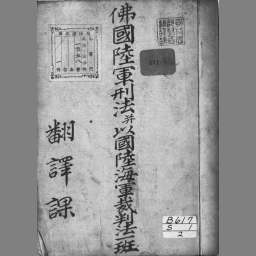 佛國陸軍刑法并以國陸海軍裁判法一班
翻譯課
B617
S 1
2